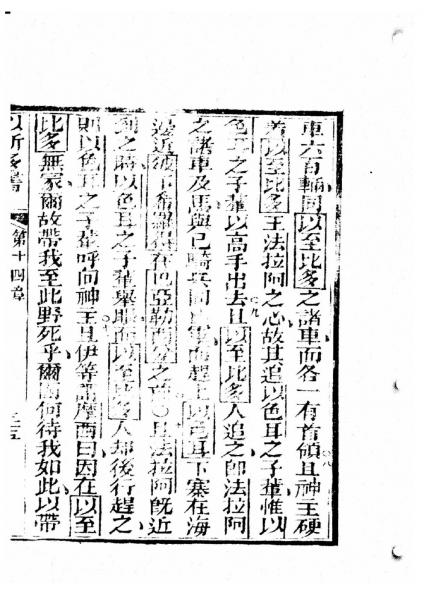 車六百輛同以至比多之諸車而各一有首領且神主硬
着以至比多王法拉阿之心故其追以色耳之子輩惟以
色耳之子輩以高手出去且以至比多人追之即法拉阿
之諸車及馬與已騎兵同軍而趕上以色耳下寨在海
邊近彼下希在巴亞勒之前○且法拉阿既近
到之時以色耳之子輩舉眼而以至比多人却後行趕之
則以色耳之子輩呼向神主且伊等謂摩西曰因在以至
比多無冢爾故帶我至此野死乎爾因何待我如此以帶
以所多書 第十四章